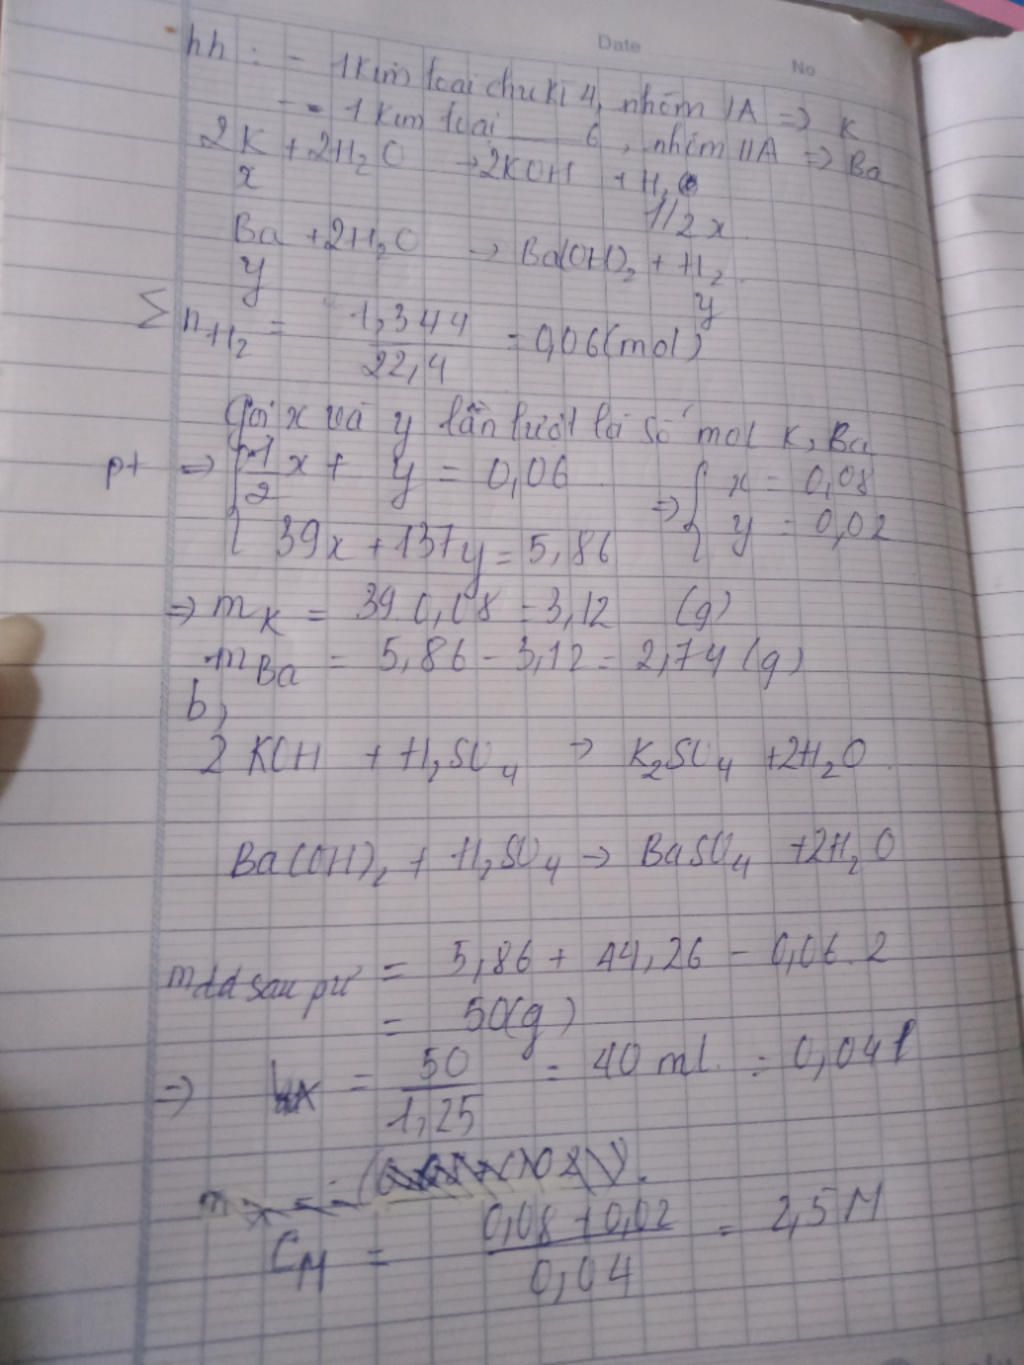 Date
No
hh : - 1 kim loại chu kì 4, nhóm IA => K
- 1 kim loại ___ 6, nhóm IIA => Ba
2K + 2H₂O → 2KOH + H₂
x 1/2x
Ba + 2H₂O → Ba(OH)₂ + H₂
y y
Σ nH₂ = 1,344/22,4 = 0,06(mol)
Gọi x và y lần lượt là số mol K, Ba
pt => { 1/2 x + y = 0,06 => { x = 0,08
39x + 137y = 5,86 y = 0,02
=> mK = 39.0,08 = 3,12 (g)
mBa = 5,86 - 3,12 = 2,74 (g)
b,
2KOH + H₂SO₄ → K₂SO₄ + 2H₂O
Ba(OH)₂ + H₂SO₄ → BaSO₄ + 2H₂O
mdd sau pư = 5,86 + 44,26 - 0,06.2
= 50(g)
=> = 50/1,25 = 40 ml = 0,04 l
CM = 0,08 + 0,02 / 0,04 = 2,5M